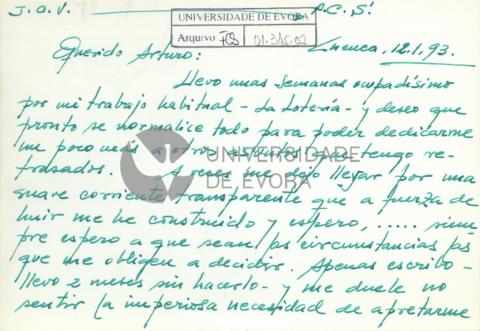 J.O.V. P.C.S!
UNIVERSIDADE DE ÉVORA
Arquivo FCS 01.345.02
Querido Arturo: Cuenca, 12.1.93.
Llevo unas semanas ocupadísimo
por mi trabajo habitual - La Lotería - y deseo que
pronto se normalice todo para poder dedicarme
un poco más a otros que tengo re-
trasados. A veces me dejo llevar por una
suave corriente transparente que a fuerza de
huir me he construido y espero, ..... siem-
pre espero a que sean las circunstancias las
que me obliguen a decidir. Apenas escribo -
llevo 2 meses sin hacerlo - y me duele no
sentir la imperiosa necesidad de apretarme
UNIVERSIDADE
DE ÉVORA